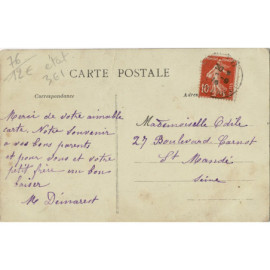 76
12€
état
3,61
CARTE POSTALE
Correspondance
10
Merci de votre aimable
carte. Notre souvenir
a vos bons parents
et pour vous et votre
petit frère un bon
baiser
M Démarest
Mademoiselle Odette
27 Boulevard Carnot
St Mandé
Seine